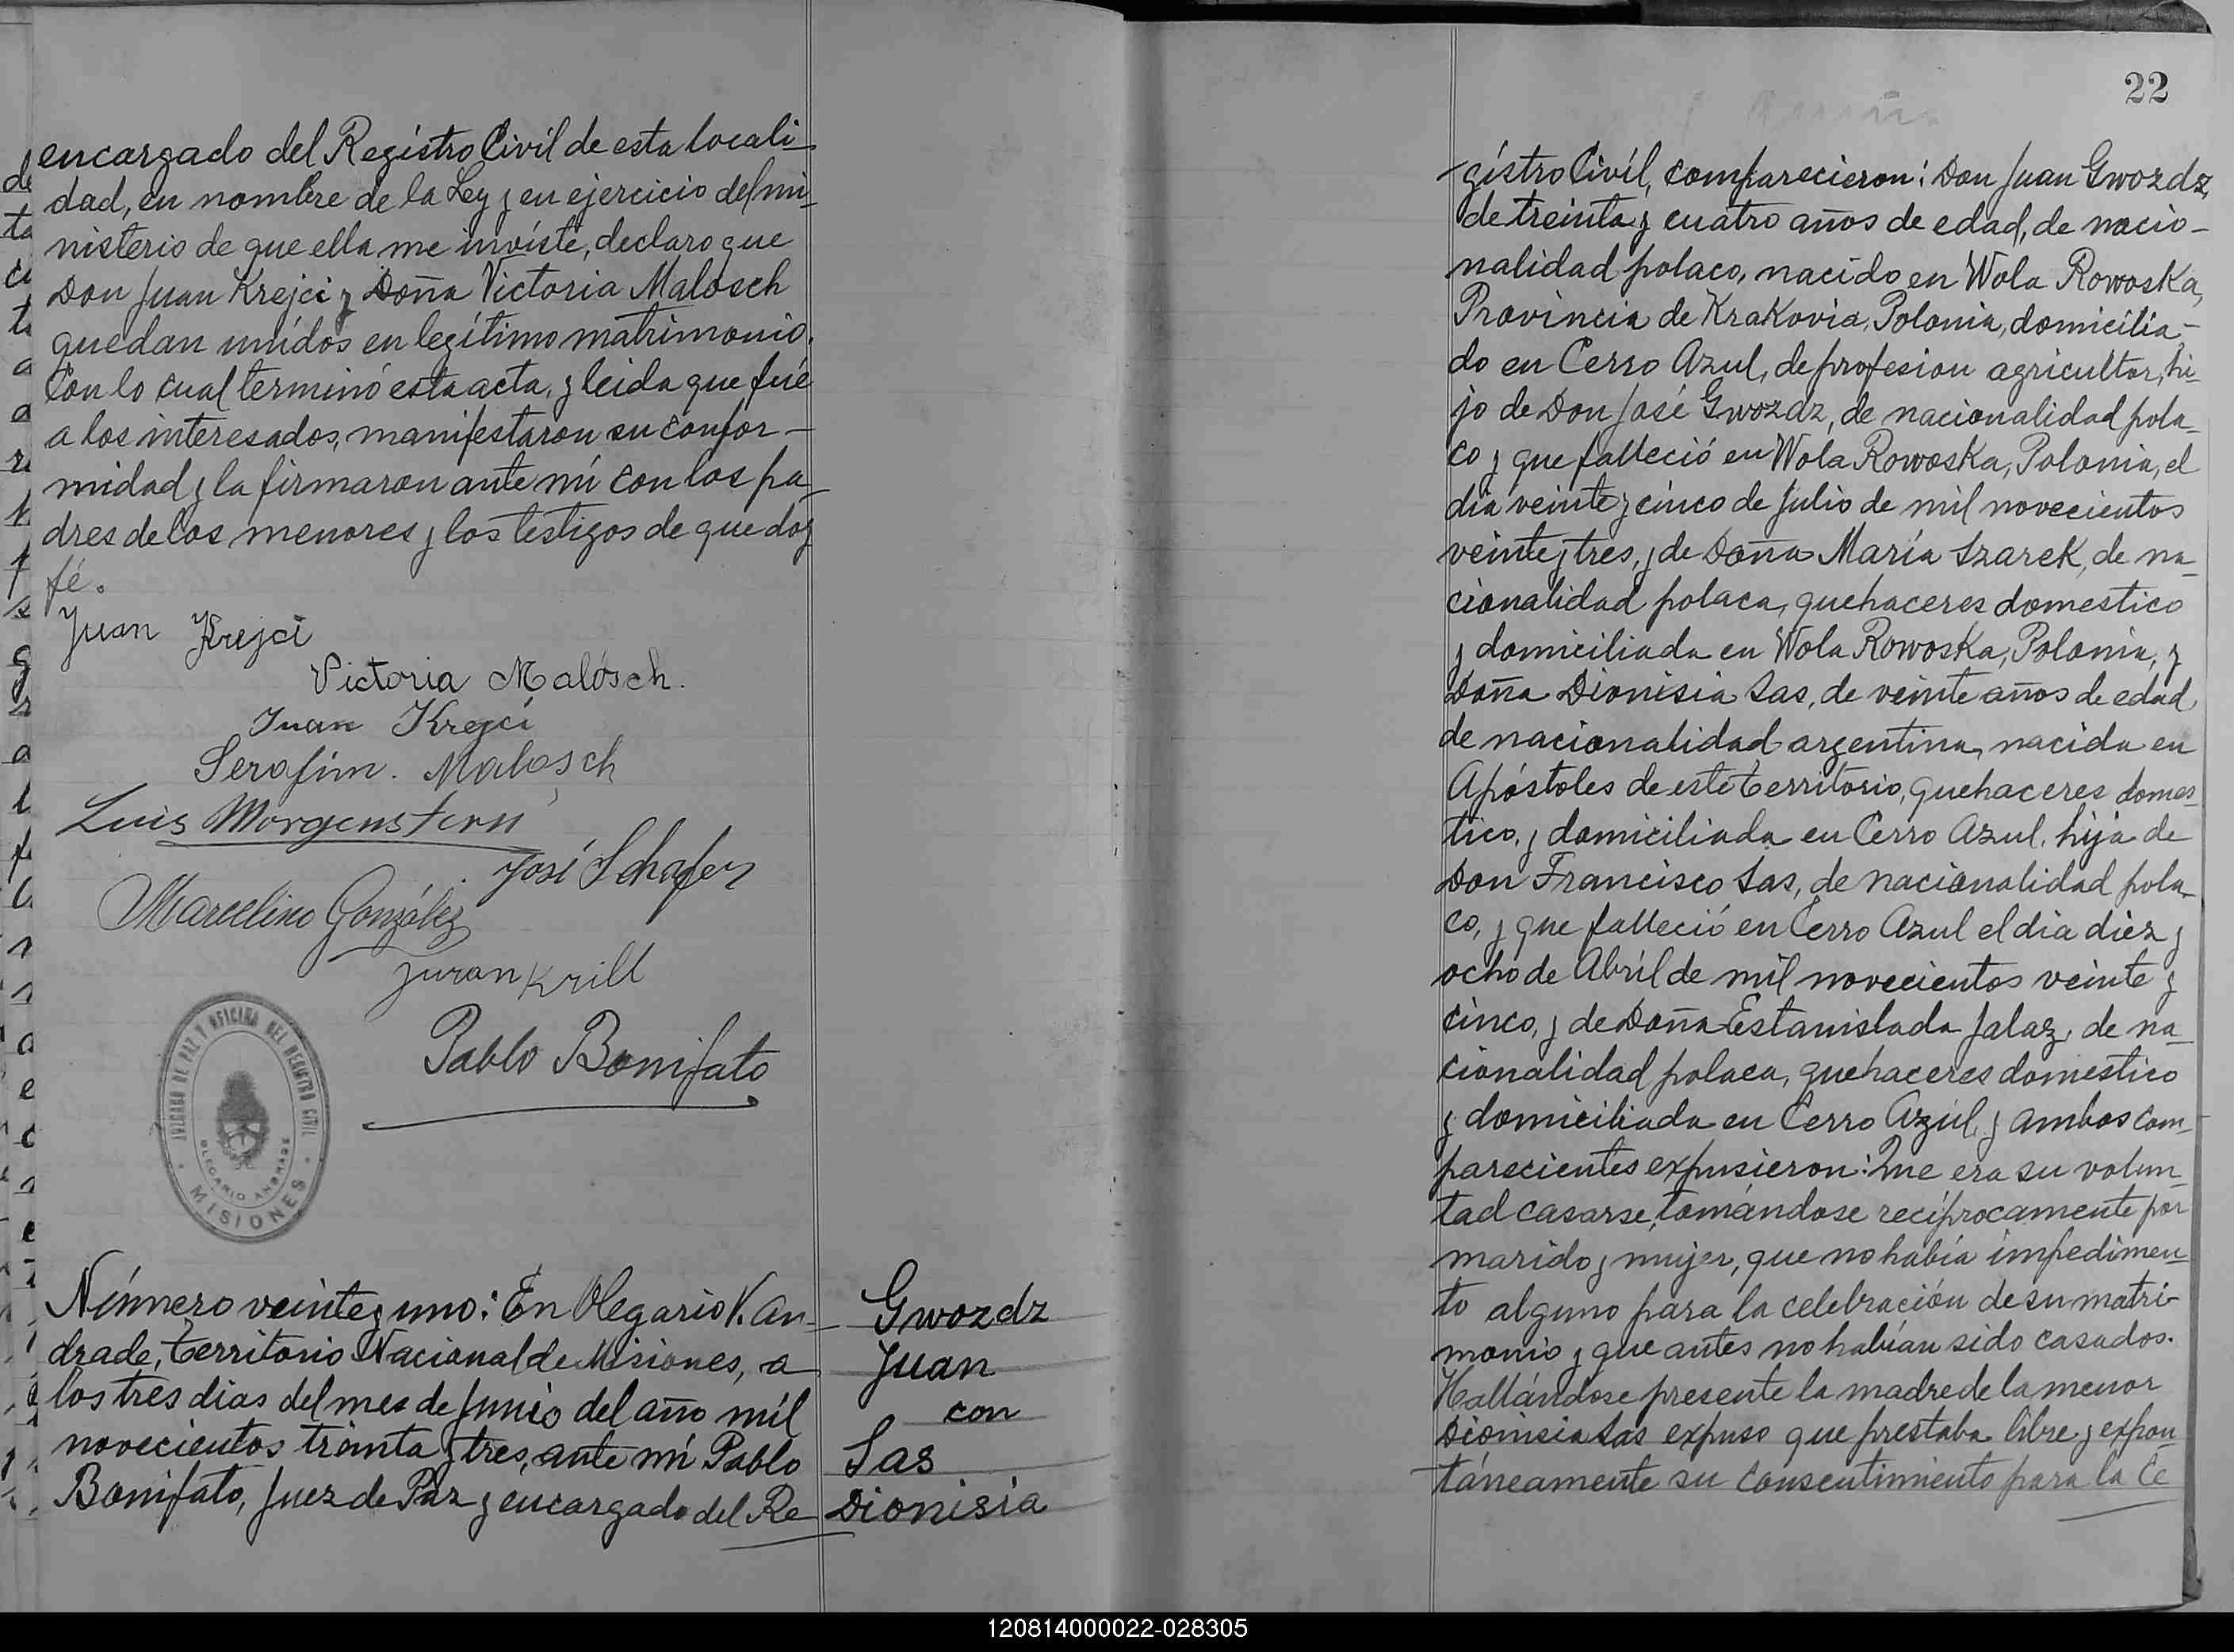 encargado del Registro Civil de esta locali-
dad, en nombre de la Ley y en ejercicio del mi-
nisterio de que ella me inviste, declaro que
Don Juan Krejci y Doña Victoria Malosch
quedan unidos en legítimo matrimonio.
Con lo cual terminó esta acta, y leida que fué
a los interesados, manifestaron su confor-
midad y la firmaron ante mí con los pa-
dres de los menores y los testigos de que doy
fé.
Juan Krejci
Victoria Malosch.
Juan Krejci
Serafim. Malosch
Luis Morgenstern
José Schafer
Marcelino González
Juran Krill
Pablo Bonifato
JUZGADO DE PAZ Y OFICINA DEL REGISTRO CIVIL
OLEGARIO ANDRADE
MISIONES
Número veinte y uno: En Olegario V. An-
drade, territorio Nacional de Misiones, a
los tres dias del mes de Junio del año mil
novecientos treinta y tres, ante mí Pablo
Bonifato, Juez de Paz y encargado del Re-
Gwozdz
Juan
con
Sas
Dionisia
22
gistro Civil, comparecieron: Don Juan Gwozdz,
de treinta y cuatro años de edad, de nacio-
nalidad polaco, nacido en Wola Rowoska,
Provincia de Krakovia, Polonia, domicilia-
do en Cerro Azul, de profesion agricultor, hi-
jo de Don José Gwozdz, de nacionalidad pola-
co y que falleció en Wola Rowoska, Polonia, el
dia veinte y cinco de Julio de mil novecientos
veinte y tres, y de Doña María Szarek, de na-
cionalidad polaca, quehaceres domestico
y domiciliada en Wola Rowoska, Polonia, y
Doña Dionisia Sas, de veinte años de edad
de nacionalidad argentina, nacida en
Apóstoles de este territorio, quehaceres domes-
tico, y domiciliada en Cerro Azul, hija de
Don Francisco Sas, de nacionalidad pola-
co, y que falleció en Cerro Azul el dia diez y
ocho de Abril de mil novecientos veinte y
cinco, y de Doña Estanislada Jalaz, de na-
cionalidad polaca, quehaceres domestico
y domiciliada en Cerro Azul, y ambos com-
parecientes expusieron: Que era su volun-
tad casarse, tomándose recíprocamente por
marido y mujer, que no había impedimen-
to alguno para la celebración de su matri-
monio y que antes no habían sido casados.
Hallándose presente la madre de la menor
Dionisia Sas expuso que prestaba libre y expon-
táneamente su consentimiento para la ce
120814000022-028305